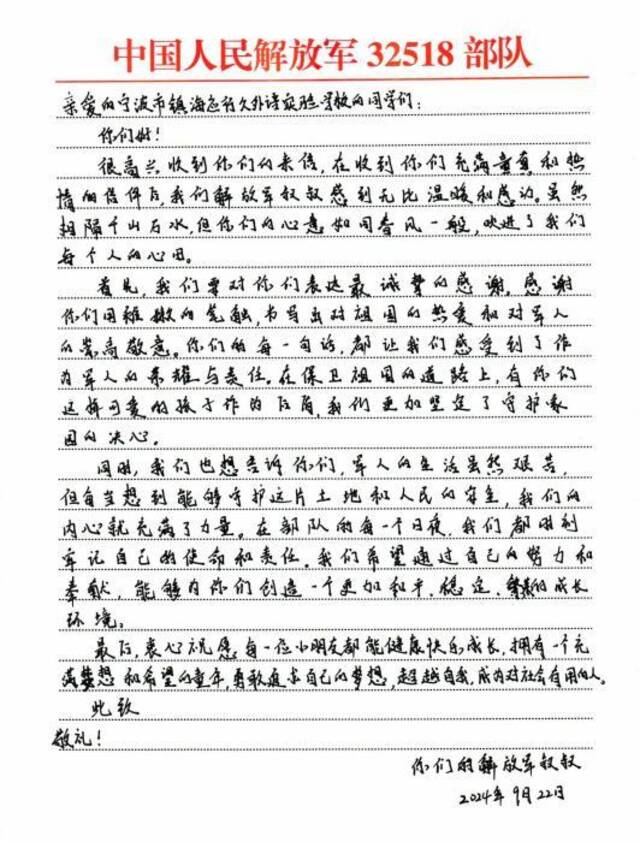 中国人民解放军 32518 部队
亲爱的宁波市镇海区蛟川外语实验学校的同学们：
你们好！
很高兴收到你们的来信，在收到你们充满童真和热
情的信件后，我们解放军叔叔感到无比温暖和感动。虽然
相隔千山万水，但你们的心意如同春风一般，吹进了我们
每个人的心田。
首先，我们要对你们表达最诚挚的感谢。感谢
你们用稚嫩的笔触，书写出对祖国的热爱和对军人
的崇高敬意。你们的每一句话，都让我们感受到了作
为军人的荣耀与责任。在保卫祖国的道路上，有你们
这样可爱的孩子作为后盾，我们更加坚定了守护家
国的决心。
同时，我们也想告诉你们，军人的生活虽然艰苦，
但每当想到能够守护这片土地和人民的安宁，我们的
内心就充满了力量。在部队的每一个日夜，我们都时刻
牢记自己的使命和责任。我们希望通过自己的努力和
奉献，能够为你们创造一个更加和平、稳定、繁荣的成长
环境。
最后，衷心祝愿每一位小朋友都能健康快乐成长，拥有一个充
满梦想和希望的童年，勇敢追求自己的梦想，超越自我，成为对社会有用的人。
此致
敬礼！
你们的解放军叔叔
2024年9月22日